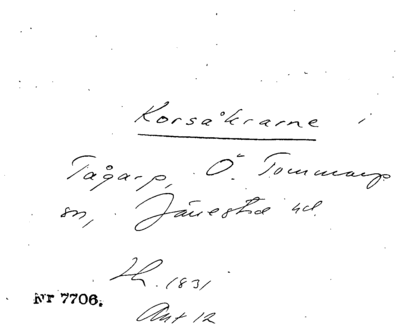 Korsåkrarne i
Tågarp, Ö. Tommarp
sn, Järrestad hd.
Lh. 1831
Nr 7706.
Akt 12